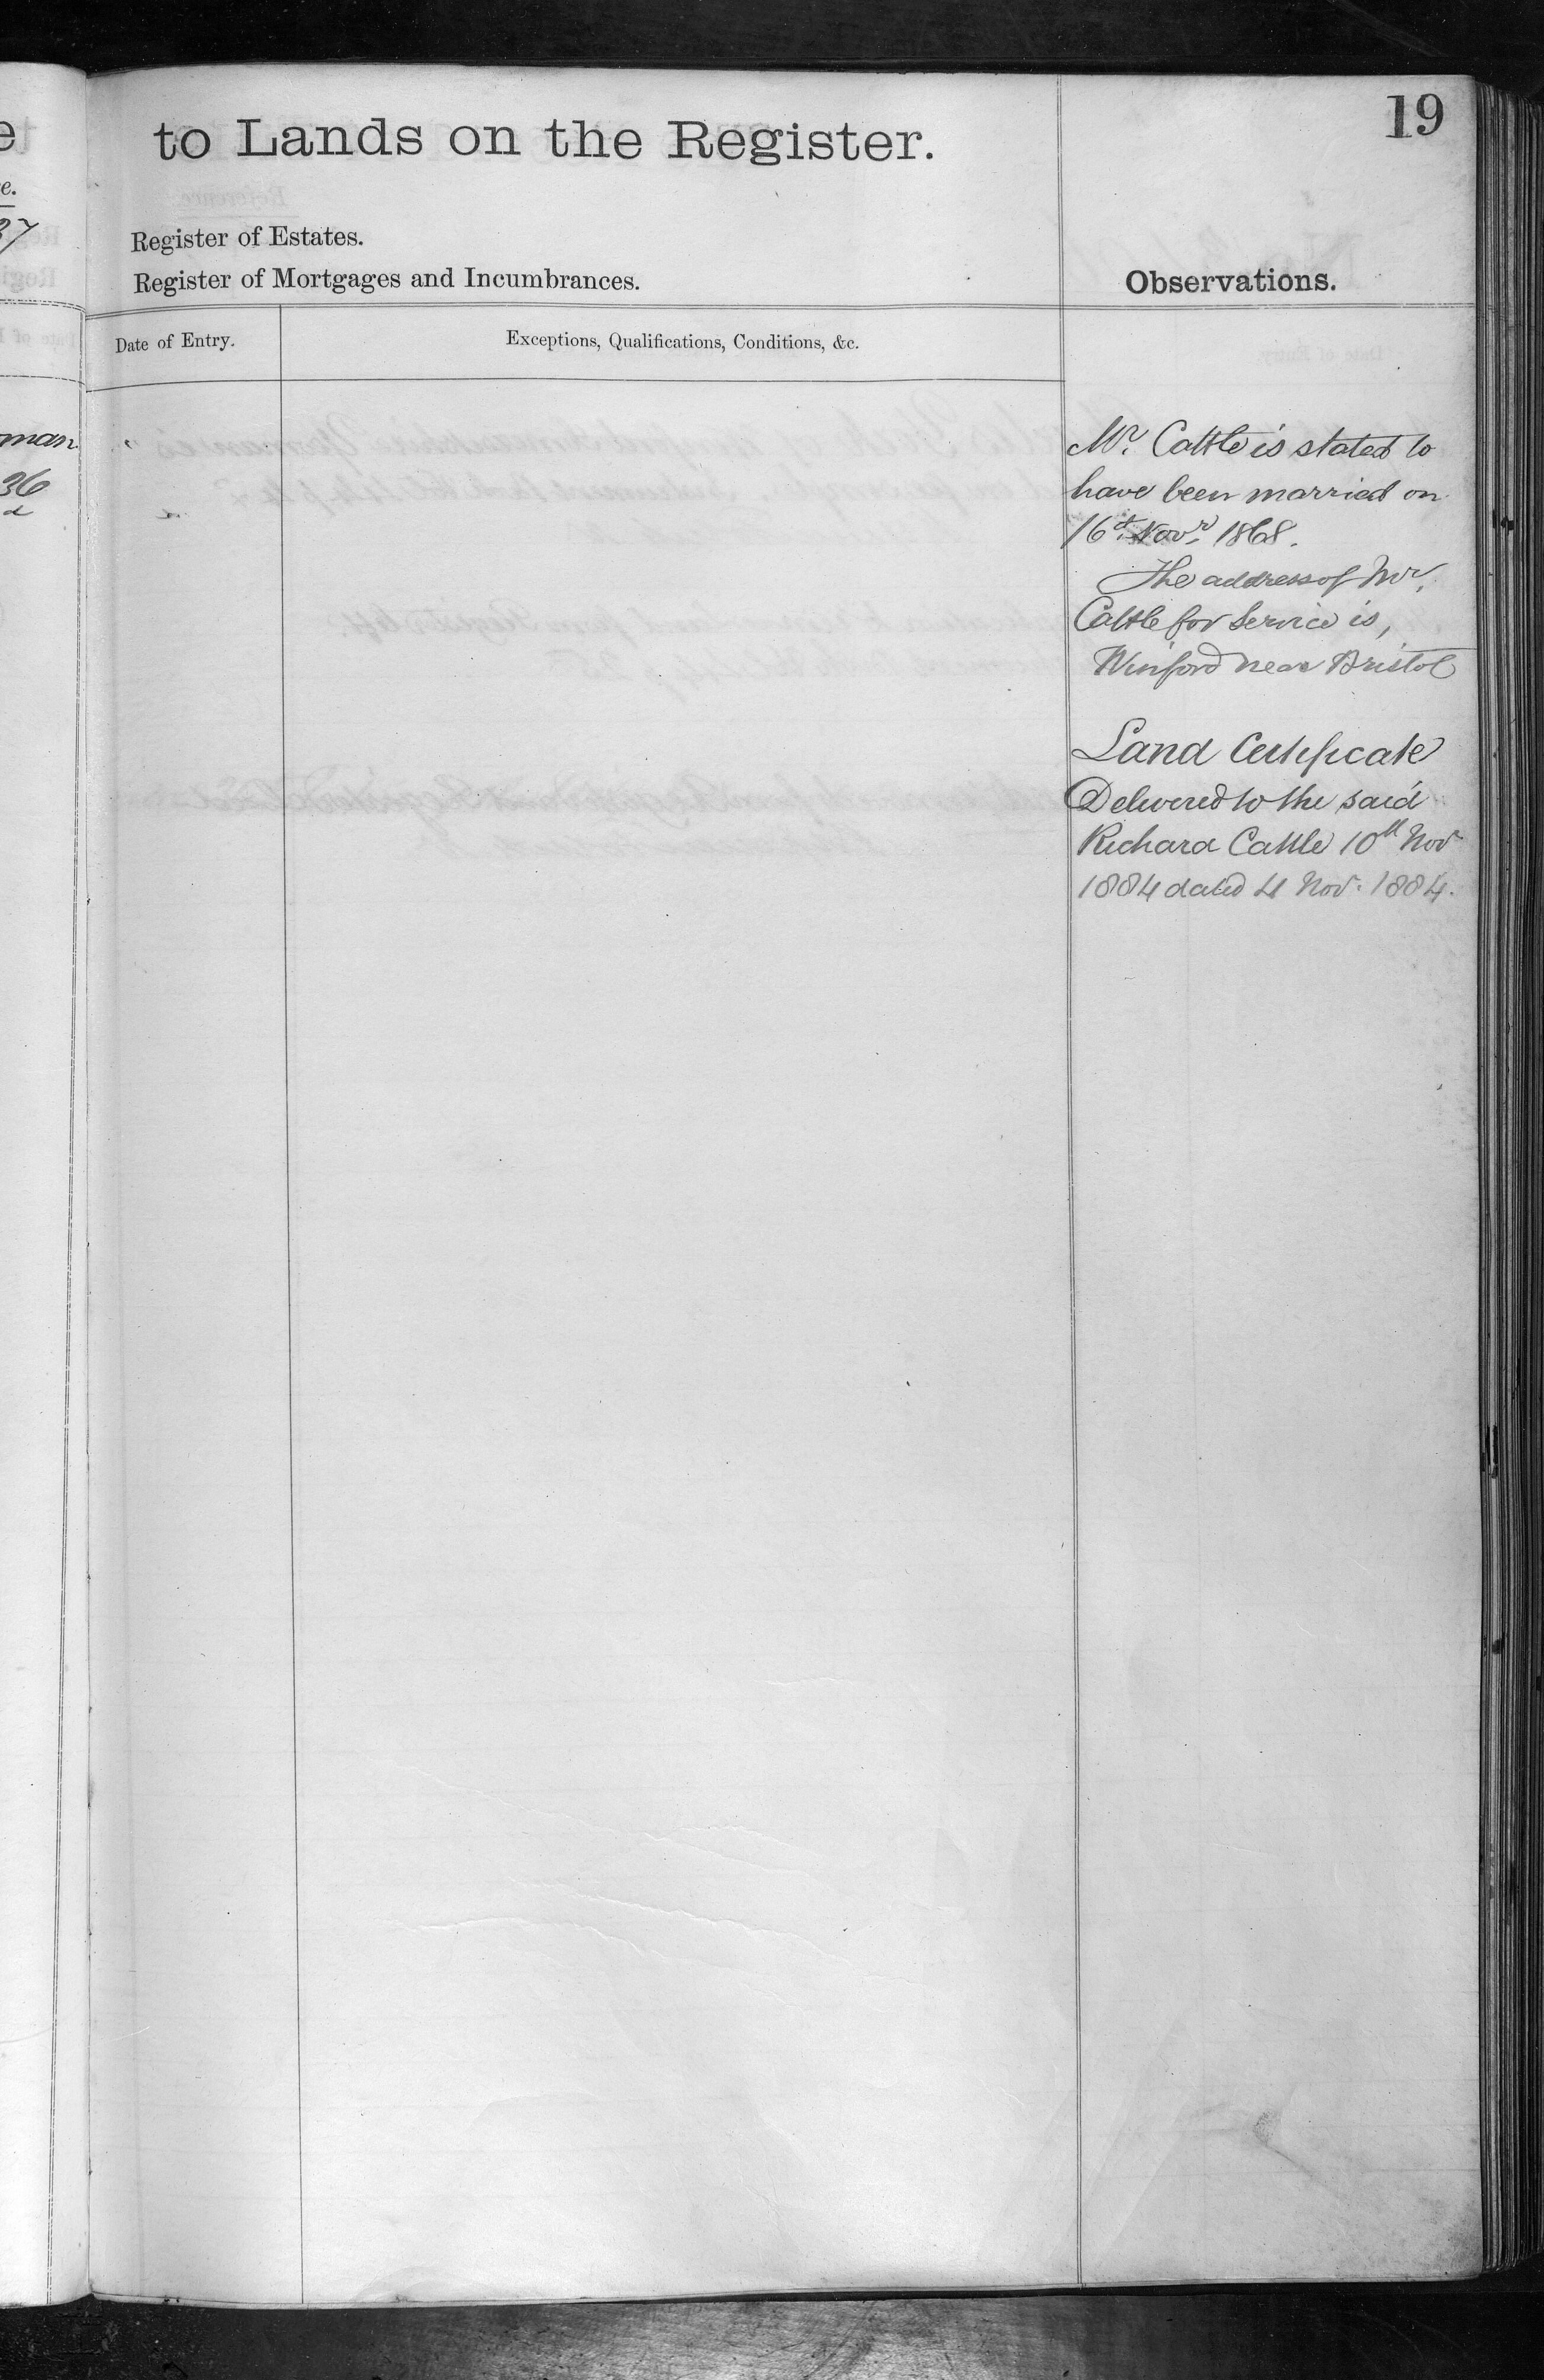 19
to Lands on the Register.
e
e.
37
Register of Estates.
Register of Mortgages and Incumbrances.
Observations.
Date of Entry.
Exceptions, Qualifications, Conditions, &c.
man
36
Mr. Cattle is stated to
have been married on
16th Novr. 1868.
The address of Mr.
Cattle for Service is,
Winford near Bristol
Land Certificate
Delivered to the said
Richard Cattle 10th Nov
1884 dated 4 Nov. 1884.